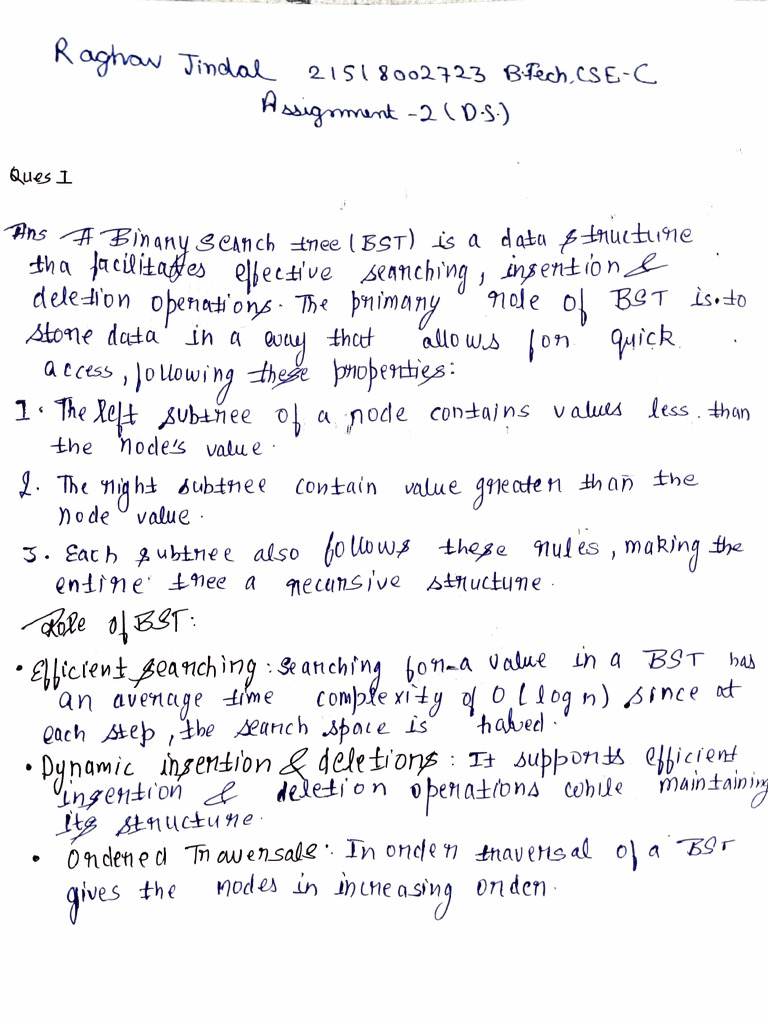 Raghav Jindal 21518002723 B.Tech.CSE-C
Assignment -2 (D.S.)
Ques 1
Ans A Binary Search tree (BST) is a data structure
tha facilitates effective searching, insertion &
deletion operations. The primary role of BST is to
store data in a way that allows for quick
access, following these properties:
1. The left subtree of a node contains values less than
the node's value.
2. The right subtree contain value greater than the
node value.
3. Each subtree also follows these rules, making the
entire tree a recursive structure.
Role of BST:
• Efficient searching: Searching for a value in a BST has
an average time complexity of O(log n) since at
each step, the search space is halved.
• Dynamic insertion & deletions: It supports efficient
insertion & deletion operations while maintaining
its structure.
• Ordered Traversals: In order traversal of a BST
gives the nodes in increasing order.